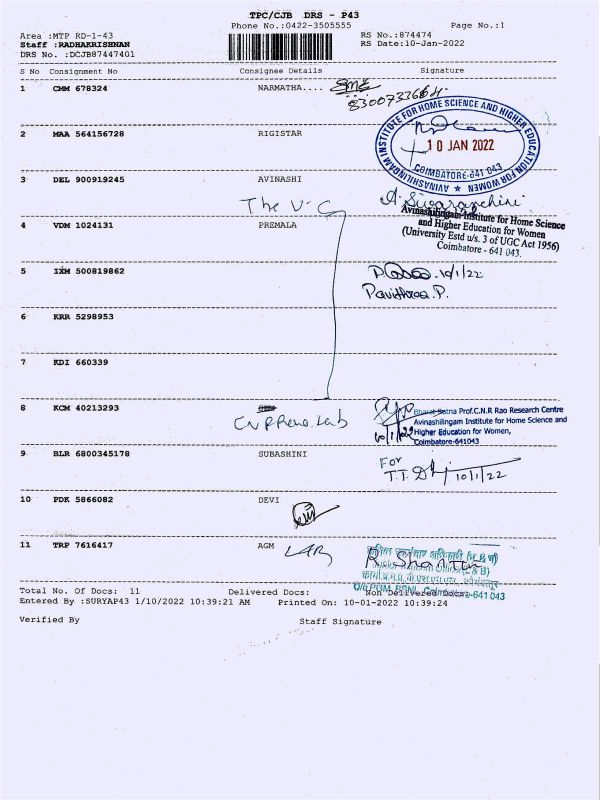 TPC/CJB DRS - P43
Phone No.:0422-3505555
Page No.:1
Area :MTP RD-1-43
RS No.:874474
Staff :RADHAKRISHNAN
RS Date:10-Jan-2022
DRS No. :DCJB87447401
S No Consignment No Consignee Details Signature
1 CMM 678324 NARMATHA....
INSTITUTE FOR HOME SCIENCE AND HIGHER EDUCATION FOR WOMEN ★ AVINASHILINGAM
10 JAN 2022
COIMBATORE-641 043
2 MAA 564156728 RIGISTAR
3 DEL 900919245 AVINASHI
The V.C
Avinashilingam Institute for Home Science
and Higher Education for Women
(University Estd u/s. 3 of UGC Act 1956)
Coimbatore - 641 043.
4 VDM 1024131 PREMALA
5 IXM 500819862
10/1/22
Pavithraa.P.
6 KRR 5298953
7 KDI 660339
8 KCM 40213293
Lab
Bharat Ratna Prof.C.N.R Rao Research Centre
Avinashilingam Institute for Home Science and
Higher Education for Women,
Coimbatore-641043
10/1/22
9 BLR 6800345178 SUBASHINI
For
T.T. 10/1/22
10 PDK 5866082 DEVI
11 TRP 7616417 AGM
Total No. Of Docs: 11 Delivered Docs: Non Delivered Docs:
-641 043
Entered By :SURYAP43 1/10/2022 10:39:21 AM Printed On: 10-01-2022 10:39:24
Verified By Staff Signature